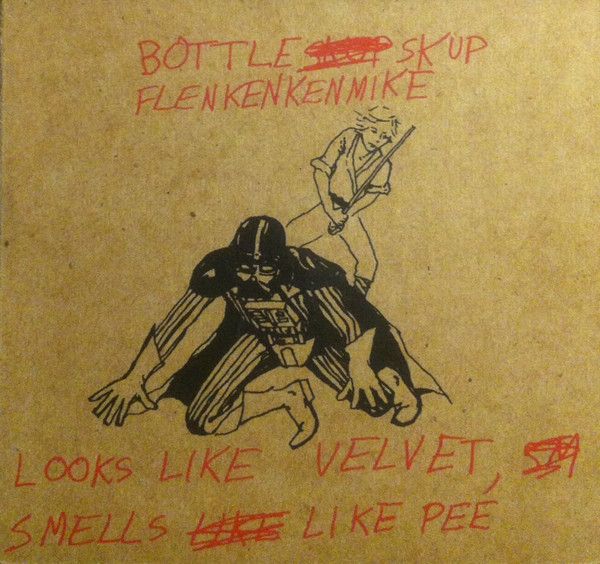 BOTTLE SKUP
FLENKENKENMIKE
LOOKS LIKE VELVET,
SMELLS LIKE LIKE PEE